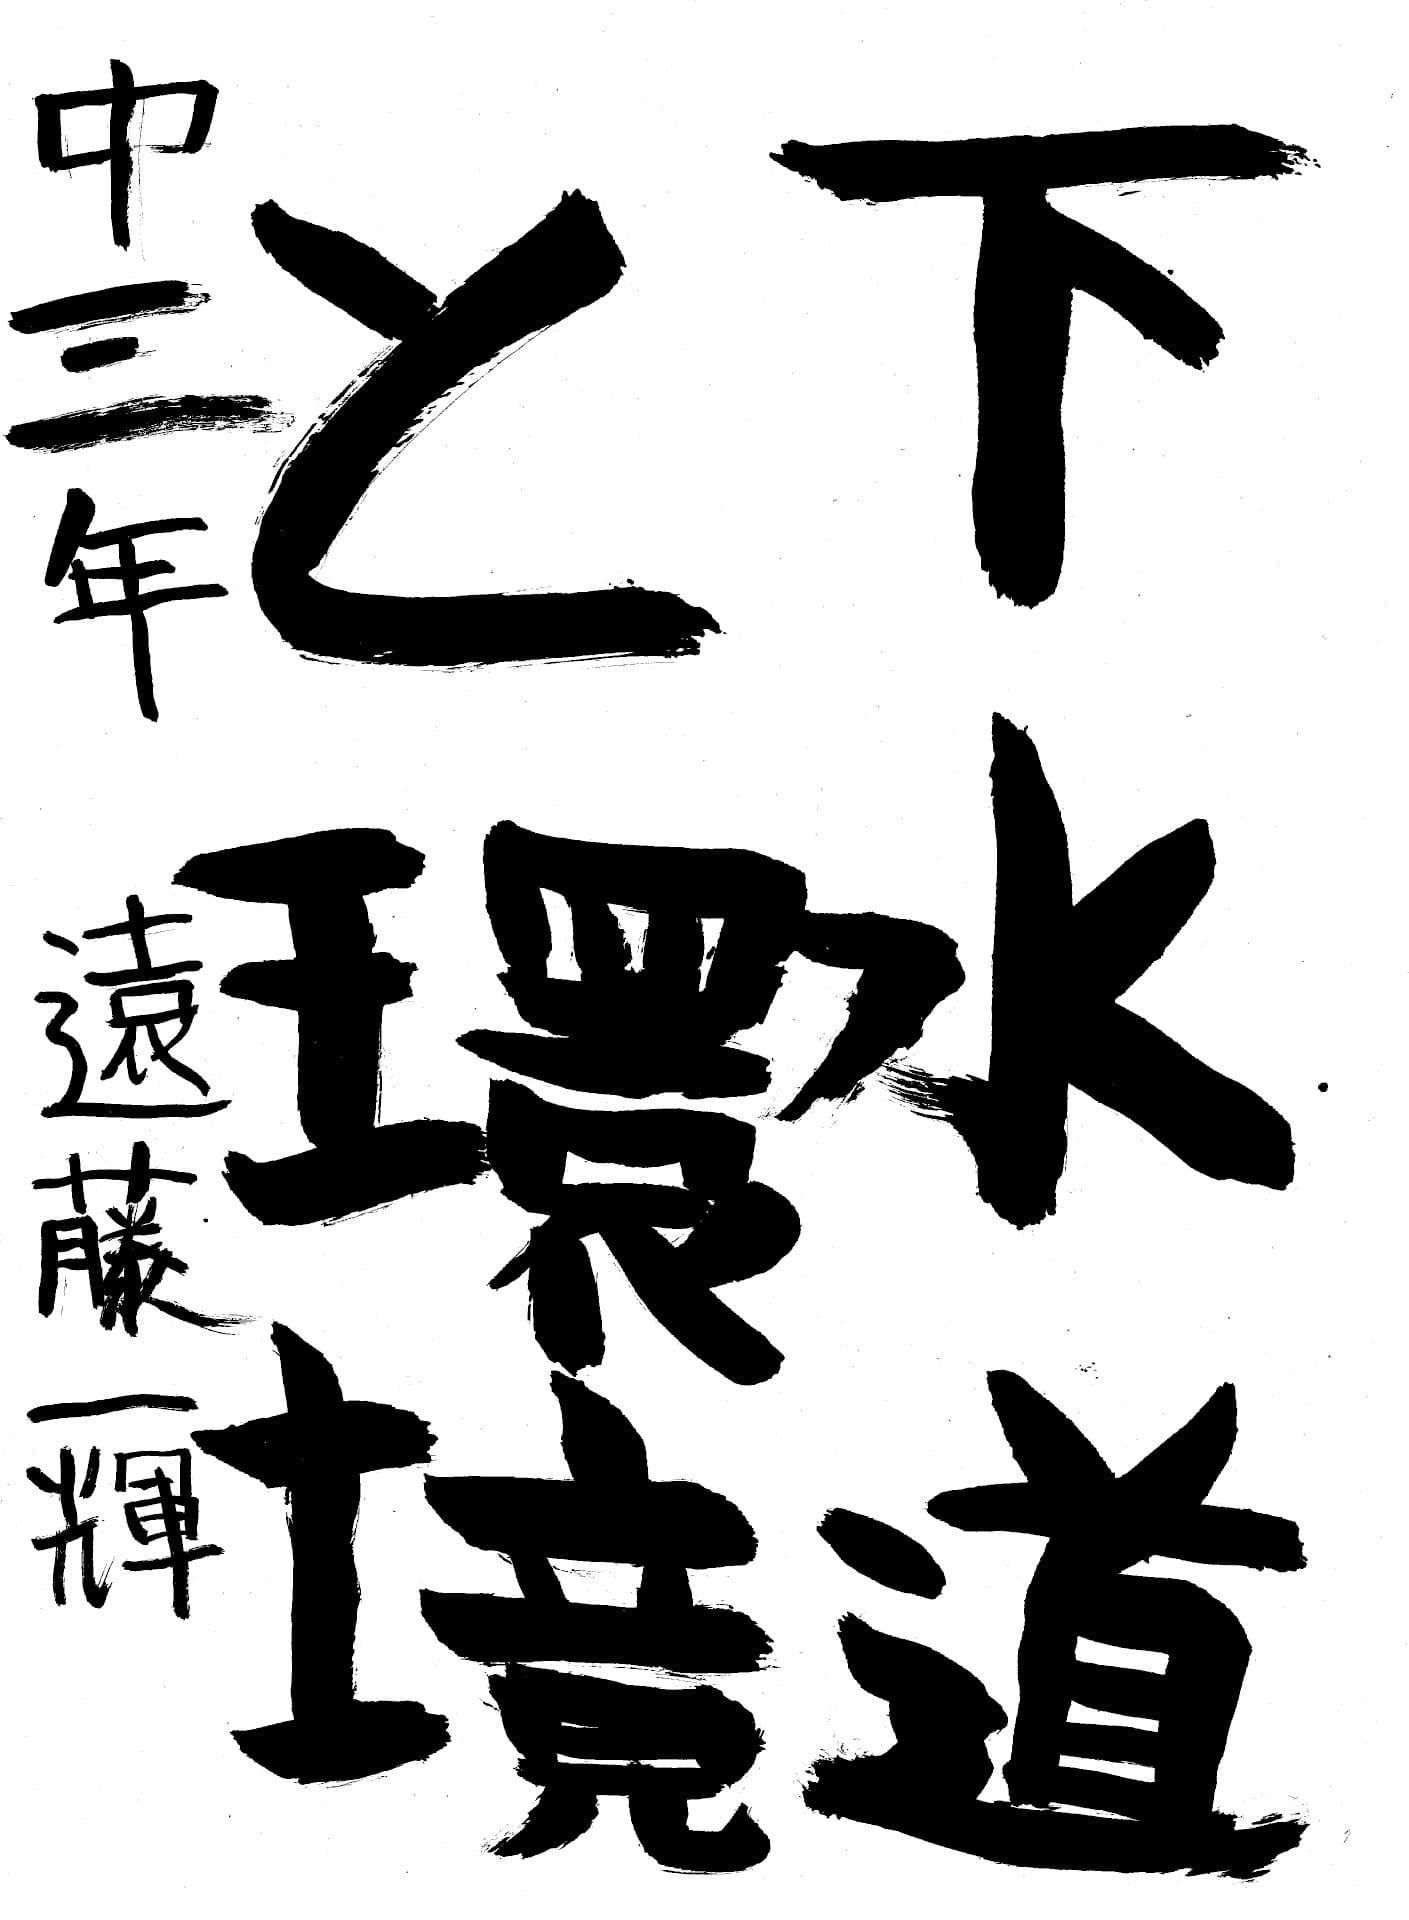 下水道
と環境
中三年 遠藤一輝